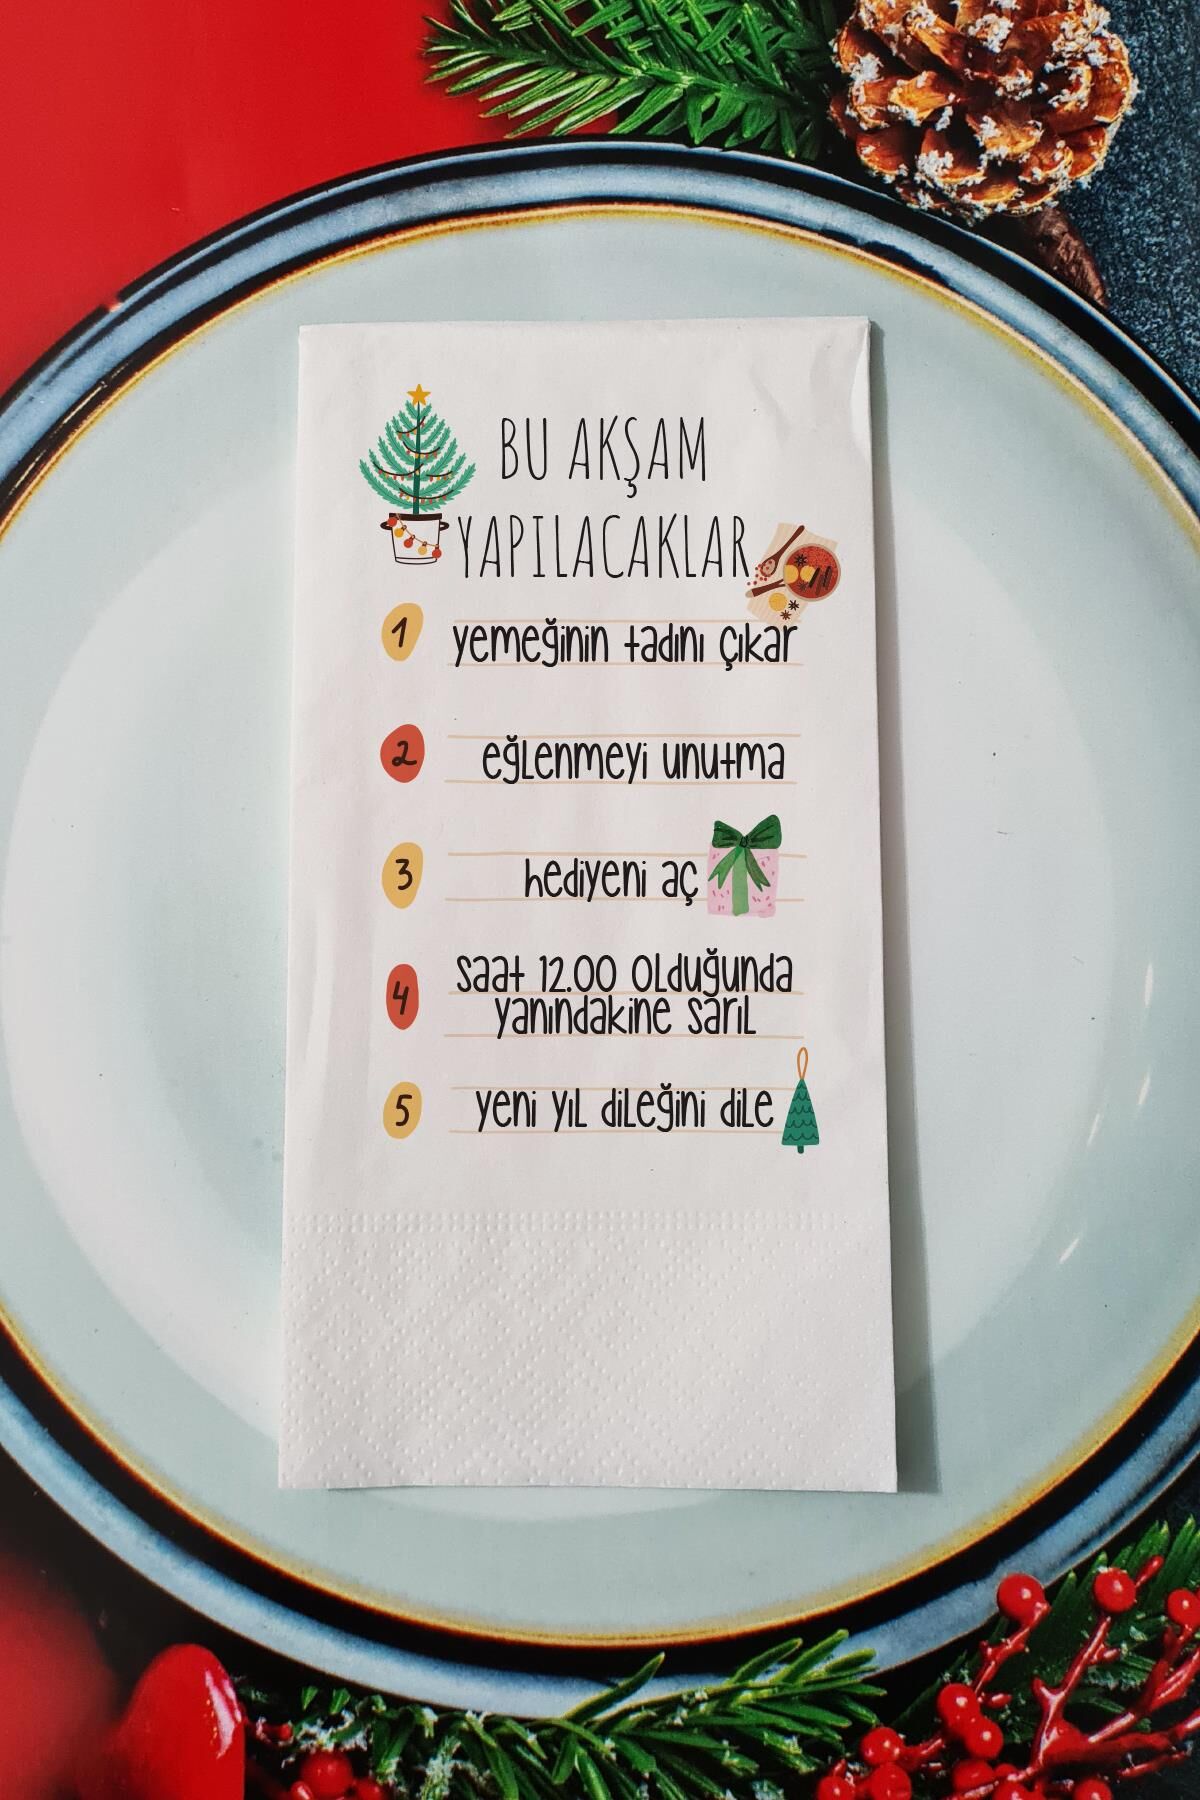 BU AKŞAM
YAPILACAKLAR
1 yemeğinin tadını çıkar
2 eğlenmeyi unutma
3 hediyeni aç
4 saat 12.00 olduğunda
yanındakine sarıl
5 yeni yıl dileğini dile